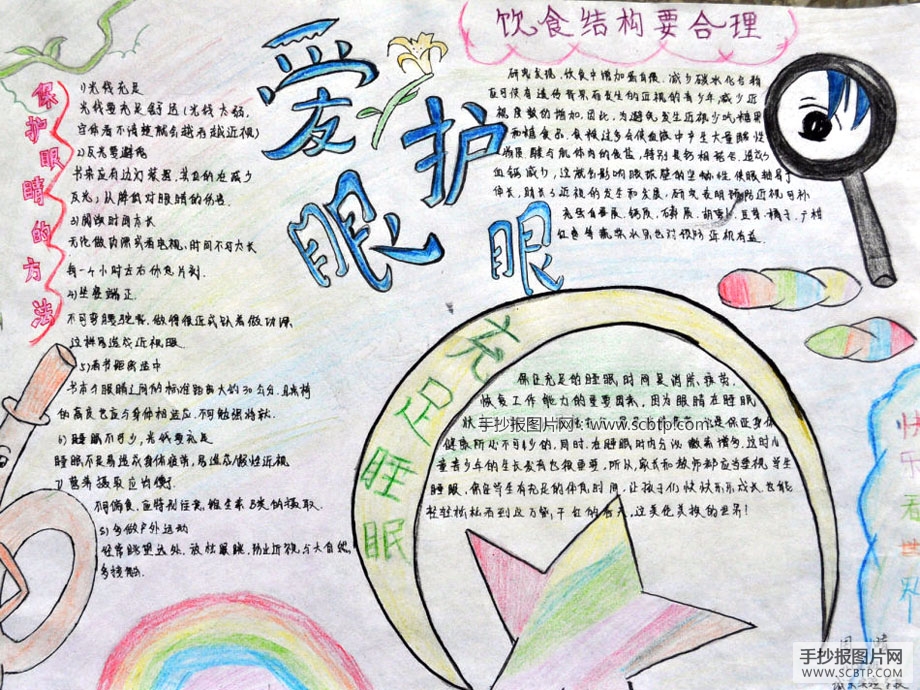 爱护眼眼
饮食结构要合理
保护眼睛的方法
1)光线充足
光线要充足舒适(光线太弱,
字体看不清楚就会越看越近视)
2)反光要避免
书桌应有边灯装置,其目的在减少
反光,以降低对眼睛的伤害.
3)阅读时间勿长
无论做功课或看电视,时间不可太长
每一4小时左右休息片刻.
4)坐姿端正
不可弯腰驼背,做得很近或趴着做功课
这样易造成近视眼
5)看书距离适中
书本与眼睛之间的标准距离大约30公分,且桌椅
的高度也应与身体相适应,不可勉强将就.
6)睡眠不可少,光线要充足
睡眠不足易造成身体疲劳,易造成假性近视
7)营养摄取应均衡
不可偏食,应特别注意,维生素B类的摄取.
8)多做户外运动
经常眺望远处,放松眼睛,防止近视,与大自然
多接触.
研究发现,饮食中增加蛋白质,减少碳水化合物
近视度数的增加.因此,为避免发生近视少吃糖果
和糖食品.食糖过多会使血液中产生大量酸性
血钙减少,这就会影响眼球壁的坚韧性,使眼轴易于
伸长,助长了近视的发生和发展,研究表明预防近视可补
红色等蔬菜水果也对预防近视有益.
充足睡眠
保证充足的睡眠时间是消除疲劳,
恢复工作能力的重要因素,因为眼睛在睡眠
健康所必不可少的,同时,在睡眠时内分泌激素增多,这对儿
童青少年的生长发育也很重要,所以,家长和教师都应当重视学生
睡眠,保证学生有充足的休息时间,让孩子们快快乐乐成长也能
轻轻松松看到这万紫千红的春天,这美伦美换的世界!
手抄报图片网 / www.scbtp.com
手抄报图片网
WWW.SCBTP.COM